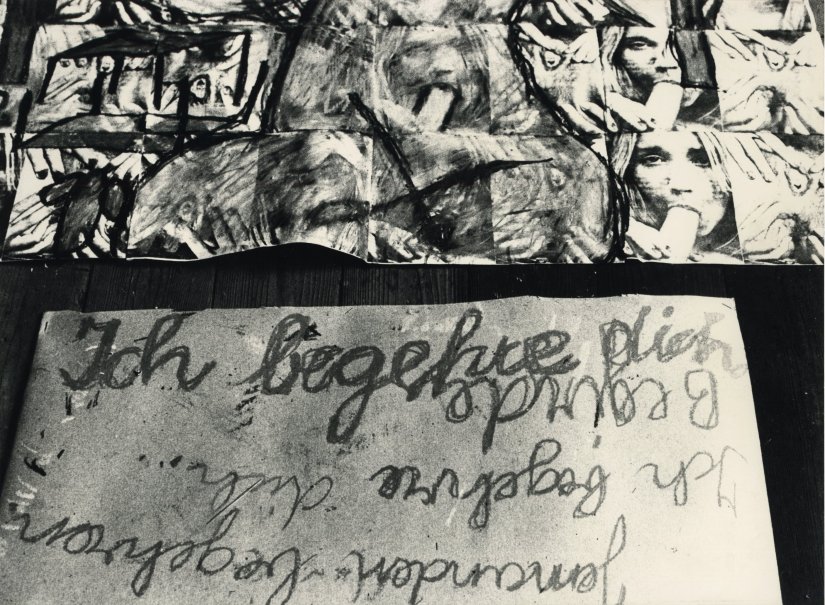 Ich begehre dich
Begierde
Ich begehre dich...
Jemanden begehren